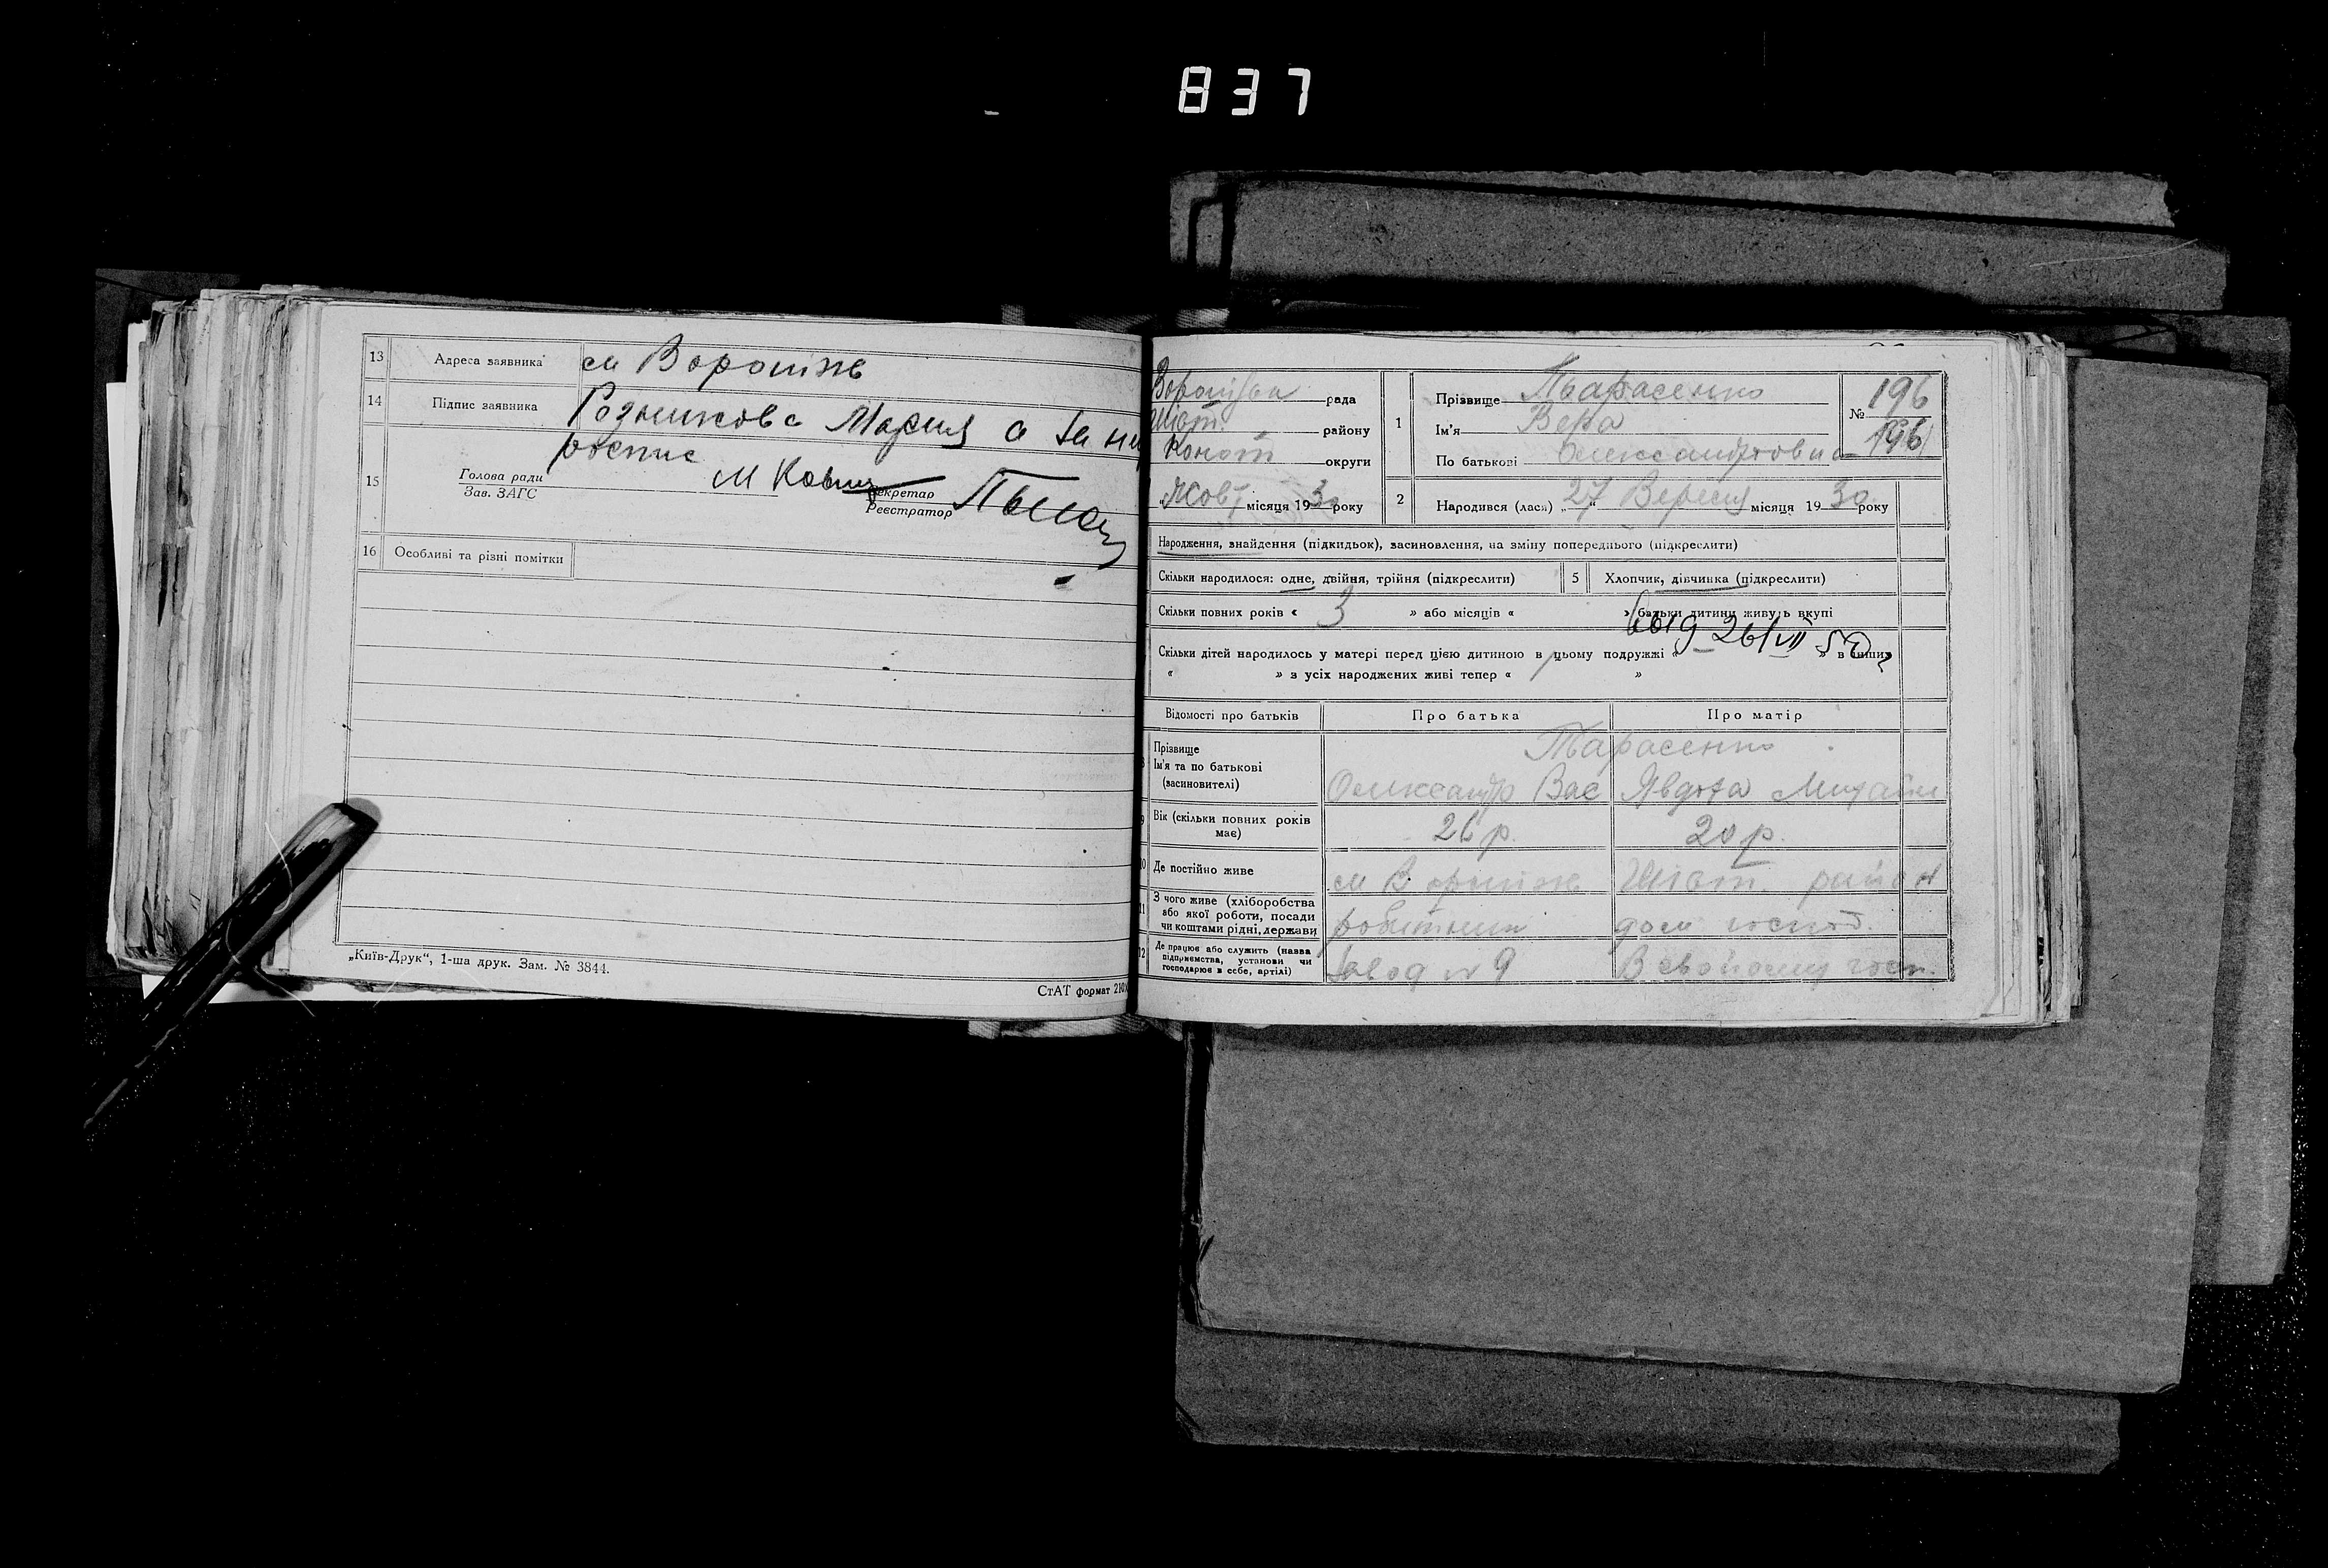 837
13 Адреса заявника см Вороніжь
14 Підпис заявника Родникова Мария а за
роспис М
15 Голова ради
Зав. ЗАГС
Секретар
Реєстратор
16 Особливі та різні помітки
„Київ-Друк“, 1-ша друк. Зам. № 3844.
СтАТ формат 210
рада
Шот. району
Конот округи
Жовт місяця 1930 року
1 Прізвище Тарасенко
Ім'я Вера
По батькові Олександровна
№ 196
196
2 Народився (лась) „27“ Вересня місяця 1930 року
Народження, знайдення (підкидьок), засиновлення, на зміну попереднього (підкреслити)
Скільки народилося: одне, двійня, трійня (підкреслити)
5 Хлопчик, дівчинка (підкреслити)
Скільки повних років « 3 » або місяців « » батьки дитини живуть вкупі
выд 26/VII 50
Скільки дітей народилось у матері перед цією дитиною в цьому подружжі « » в інших
« » з усіх народжених живі тепер « »
Відомості про батьків Про батька Про матір
Прізвище Тарасенко
Ім'я та по батькові
(засиновителі) Олександр Вас Явдоха Михайл
9 Вік (скільки повних років має) 26 р. 20 р.
10 Де постійно живе см Вороніжь Шот. район
11 З чого живе (хліборобства або якої роботи, посади чи коштами рідні, держави робітник дом госпОд.
12 Де працює або служить (назва підприємства, установи чи господарює в себе, артілі) Завод № 9 В свойому госп.